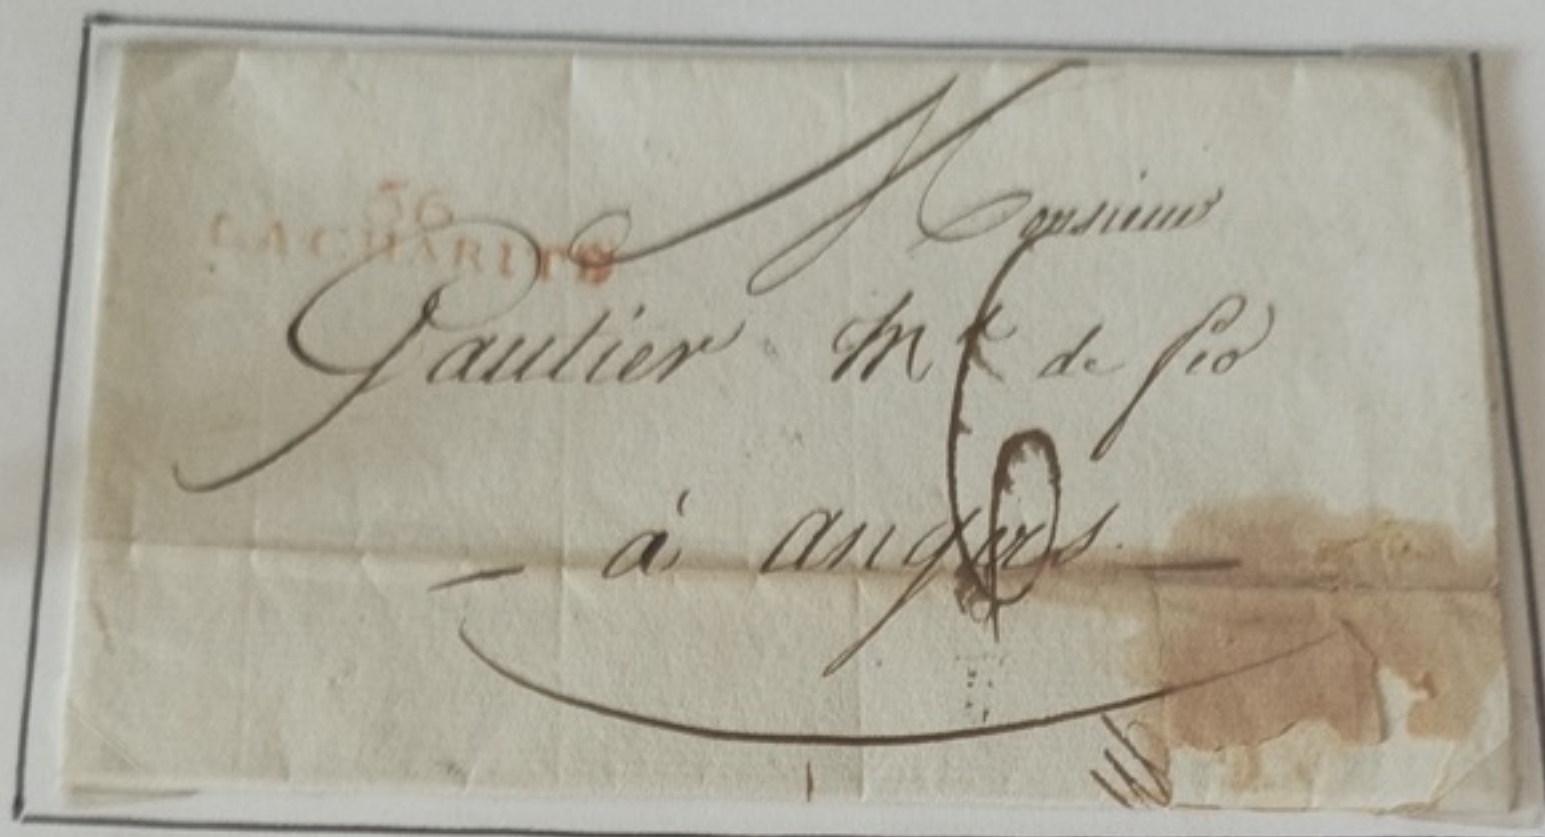 56
LACHARITE
Monsieur
Gautier Md de fer
à angers
6